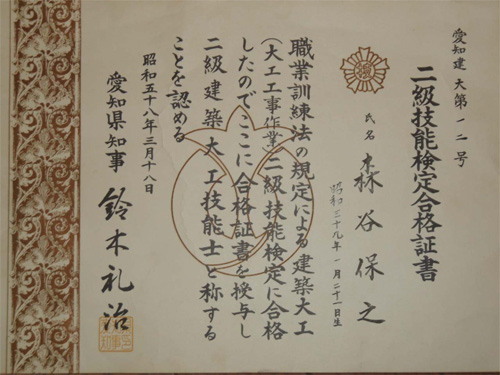 愛知建 大第一二号
二級技能検定合格証書
氏名 森谷保之
昭和三十九年一月二十一日生
職業訓練法の規定による建築大工
(大工工事作業)二級技能検定に合格
したのでここに合格証書を授与し
二級建築大工技能士と称する
ことを認める
昭和五十八年三月十八日
愛知県知事 鈴木礼治